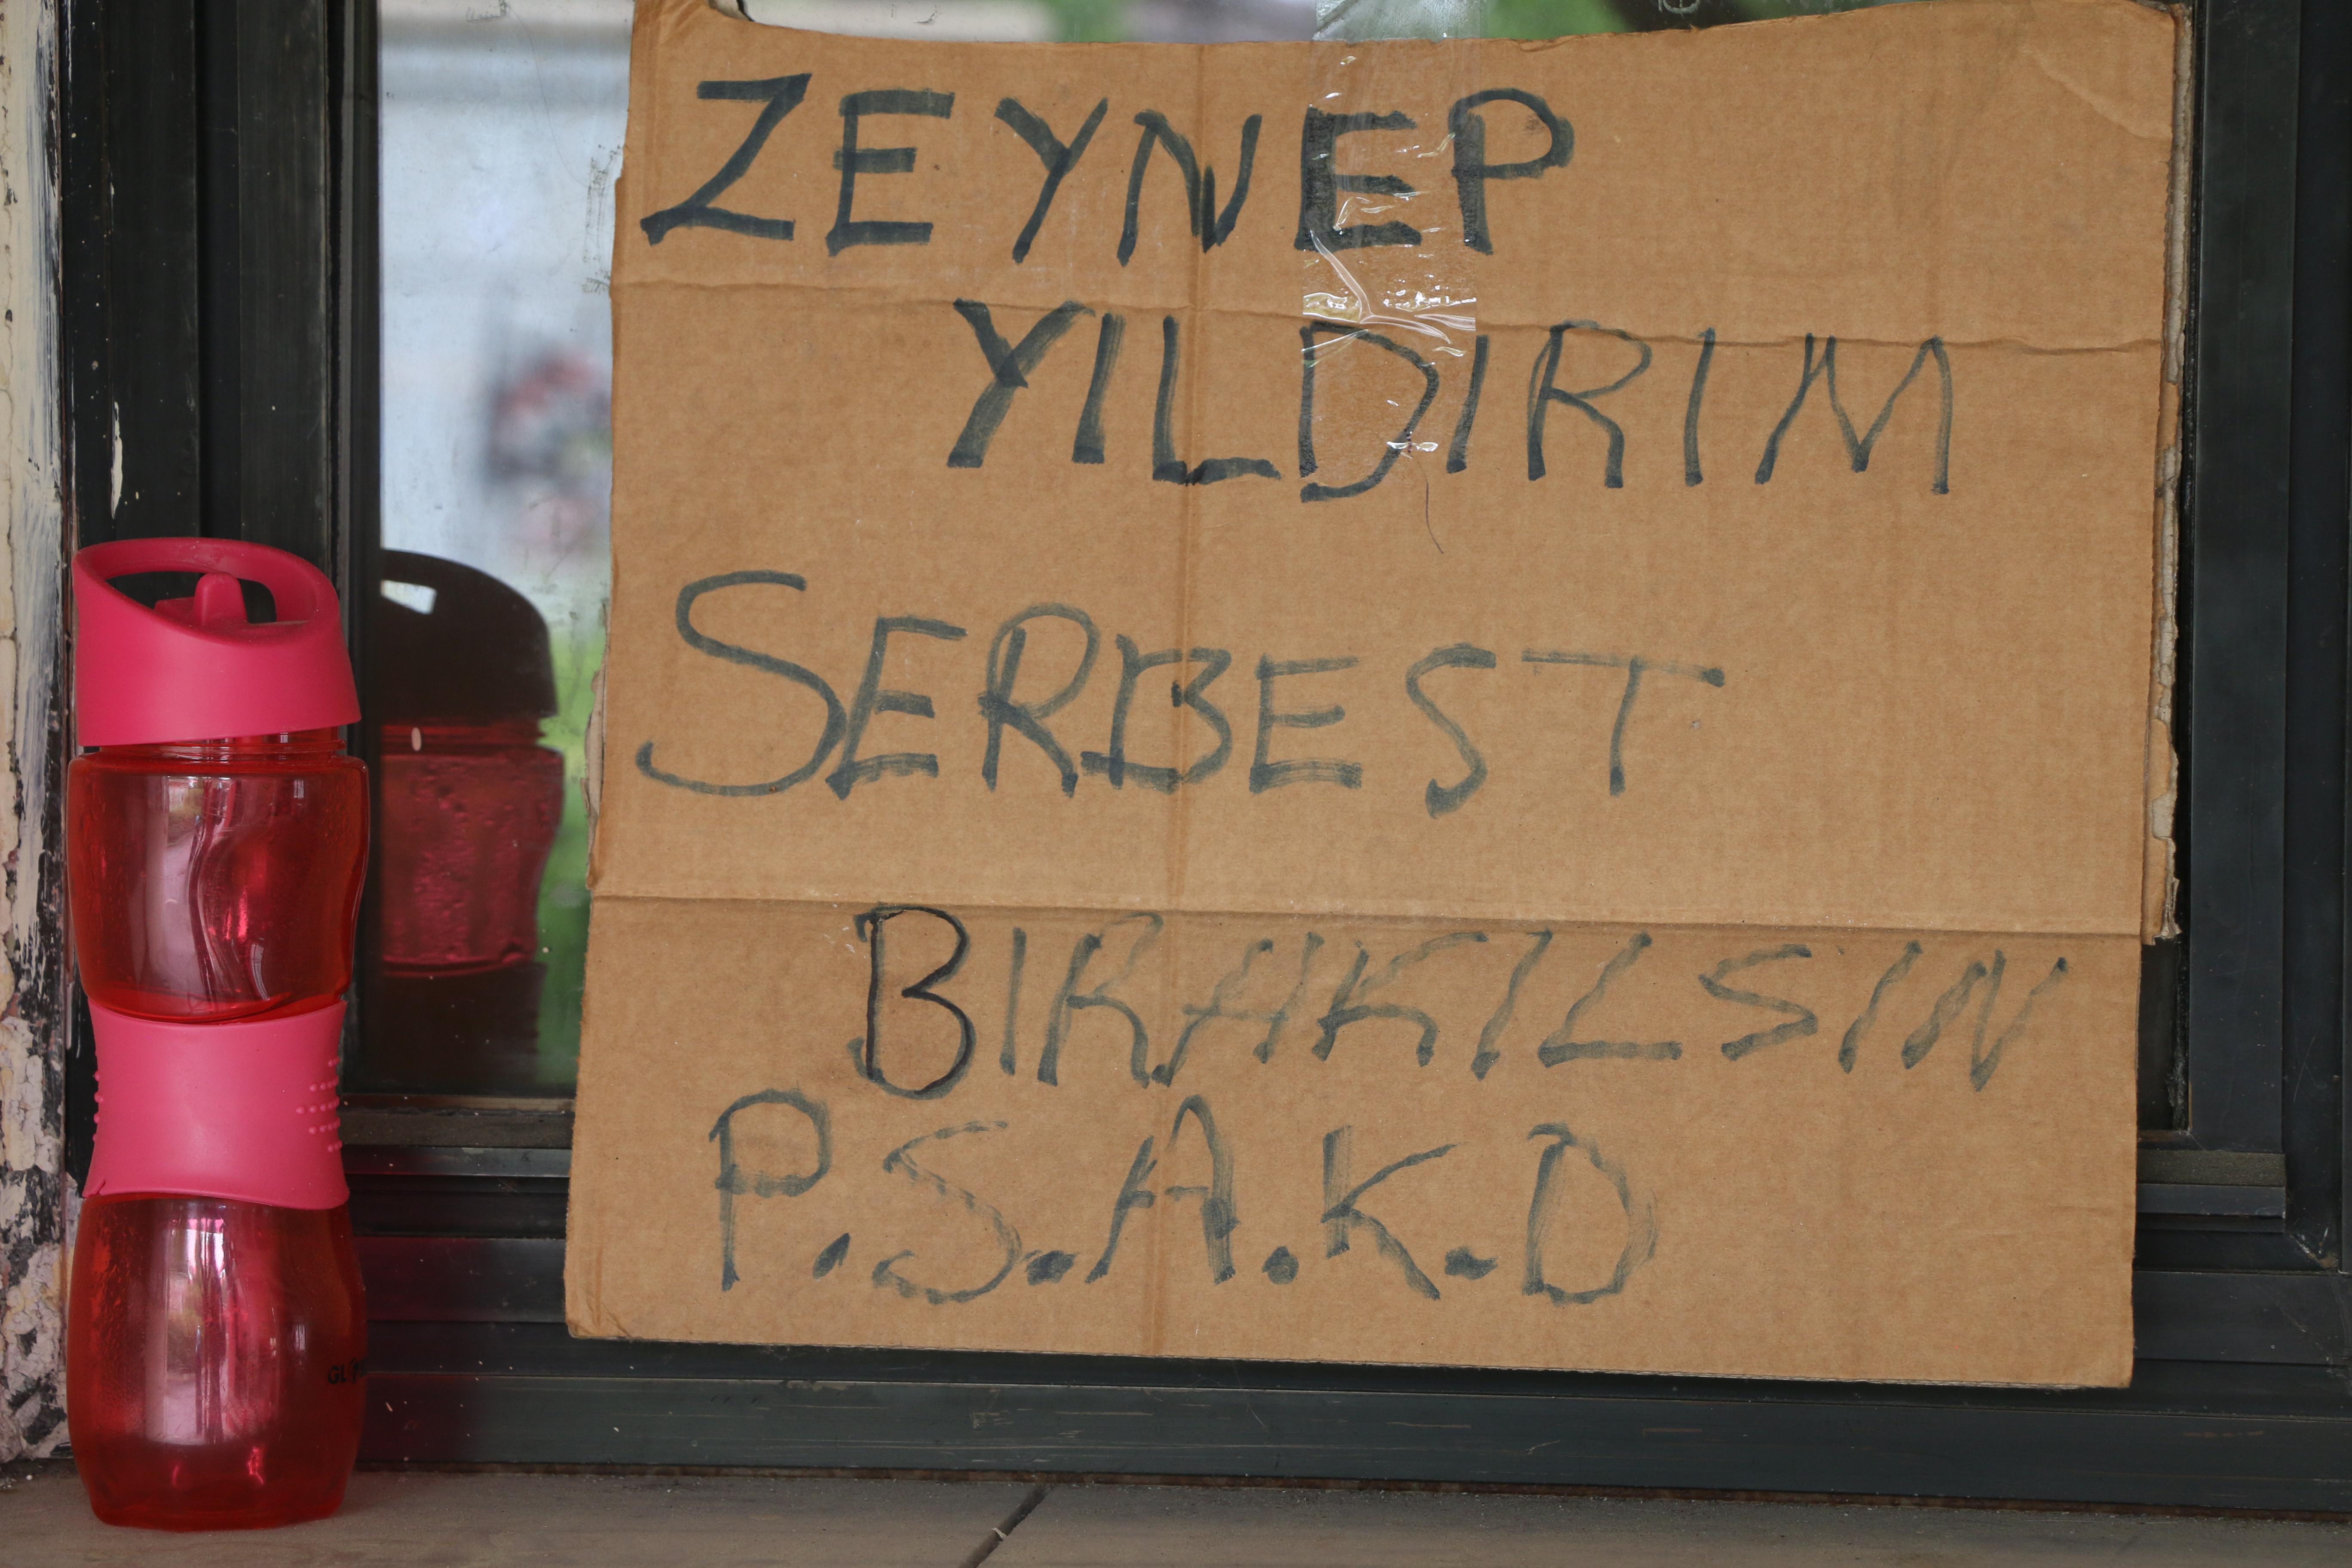 ZEYNEP
YILDIRIM
SERBEST
BIRAKILSIN
P.S.A.K.D